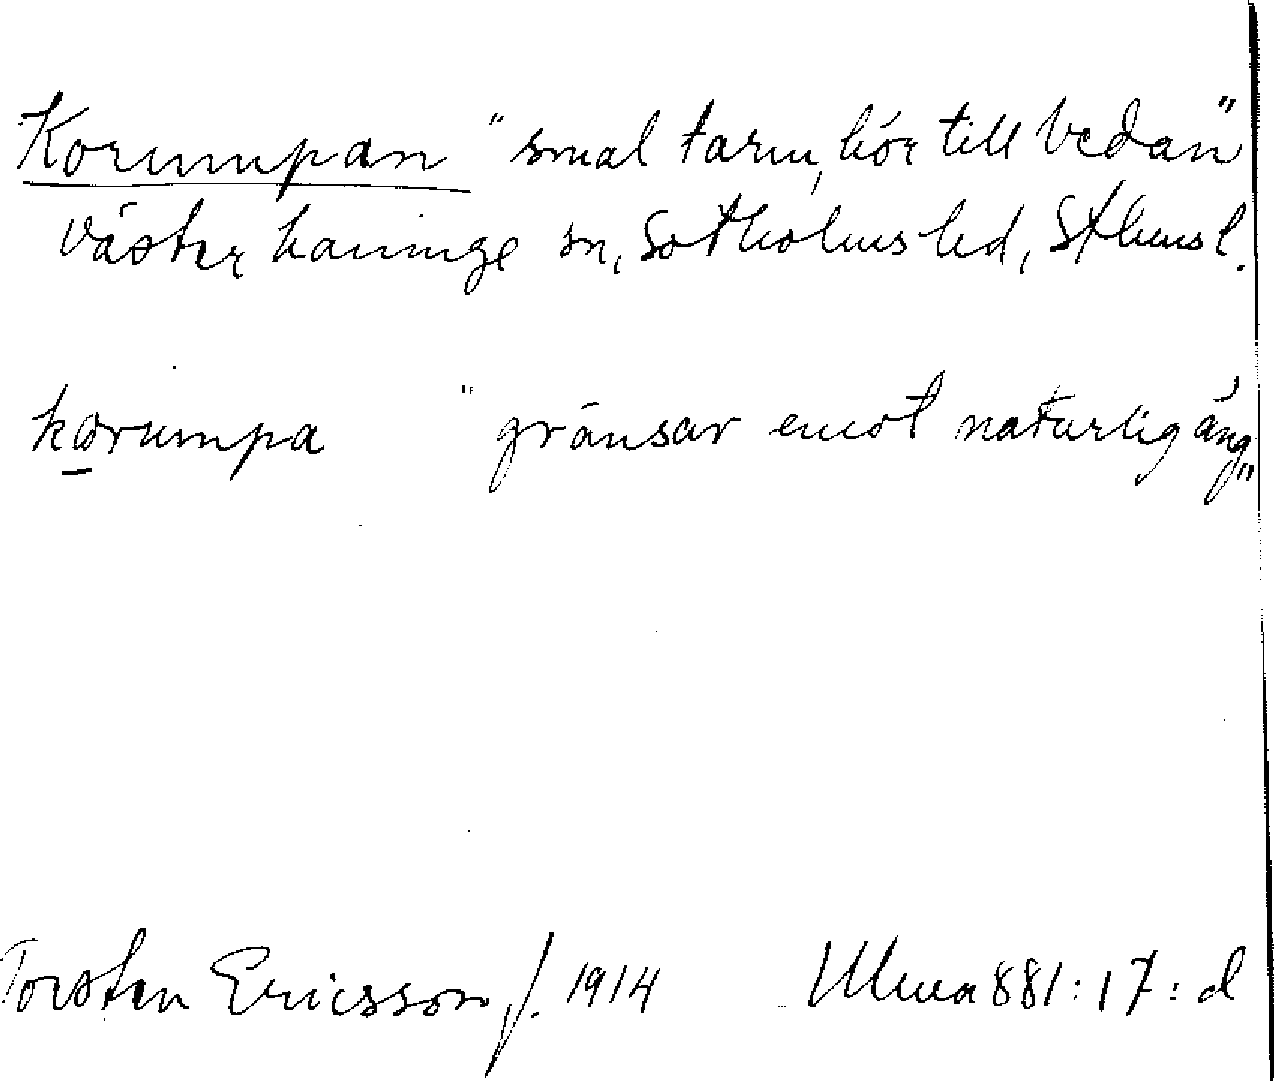 Korumpan "smal tarm, hör till Vedan"
Västerhaninge sn, Sotholms hd, Sthms l.
korumpa "gränsar emot naturlig äng"
Torsten Ericsson f. 1914 Ulma 881:17:d